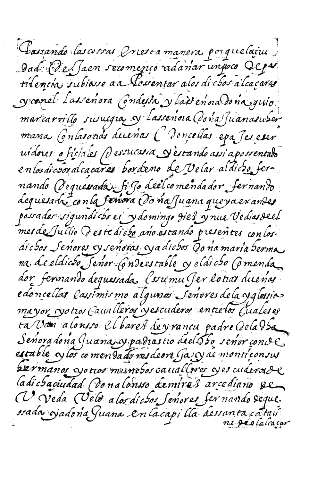 Passando las cossas en esta manera porque la ciu
dad de Jaen se començo a dañar un poco de pes
tilencia subiosse a aposentar a los dichos alcaçares
y con el la señora condessa y la señora doña guio
mar carrillo su suegra y la señora doña Juana su her
mana con las otras dueñas e doncellas e pajes e ser
vidores e ofiçiales de su cassa y estando assi aposentado
en los dichos alcaçares hordeno de velar al dicho fer
nando de quesada hijo de el comendador fernando
de quesada con la señora doña Juana que ya eran des
possados digundicho el y a domingo diez y nueve dias de el
mes de Julio de este dicho año estando presentes con los
dichos señores y señoras la dicha doña maria herma
na de el dicho señor condestable y el dicho comenda
dor fernando de quesada e su muger e otras dueñas
e doncellas e assimismo algunos señores de la yglesia
mayor y otros cavalleros y escuderos entre los quales es
tavan alonso el baref de yrancu padre de la dha
señora doña Juana y padrastro de el dho señor conde
estable y los comendadores de oreja y de montiçon sus
hermanos y otros muchos cavalleros y escuderos de
la dicha ciudad don alonso de mires arcediano de
Uveda velo a los dichos señores fernando de que
sada y a doña Juana en la capilla de santa catali
na de el alcaçar